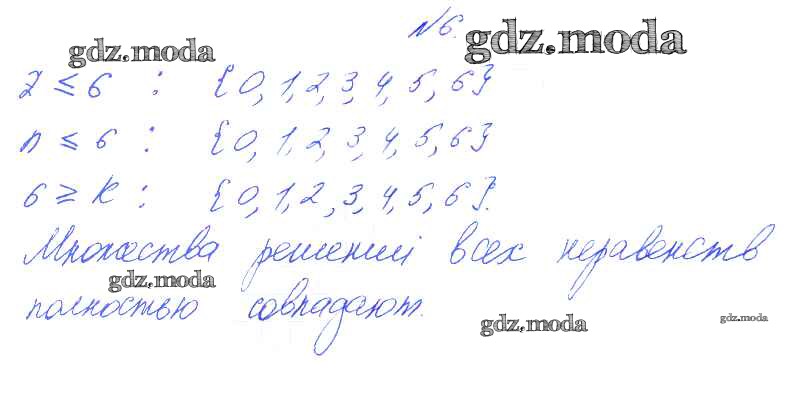 №6.
gdz.moda gdz.moda
z ≤ 6 : {0, 1, 2, 3, 4, 5, 6}
n ≤ 6 : {0, 1, 2, 3, 4, 5, 6}
6 ≥ k : {0, 1, 2, 3, 4, 5, 6}.
Множества решений всех неравенств
gdz.moda
полностью совпадают.
gdz.moda gdz.moda